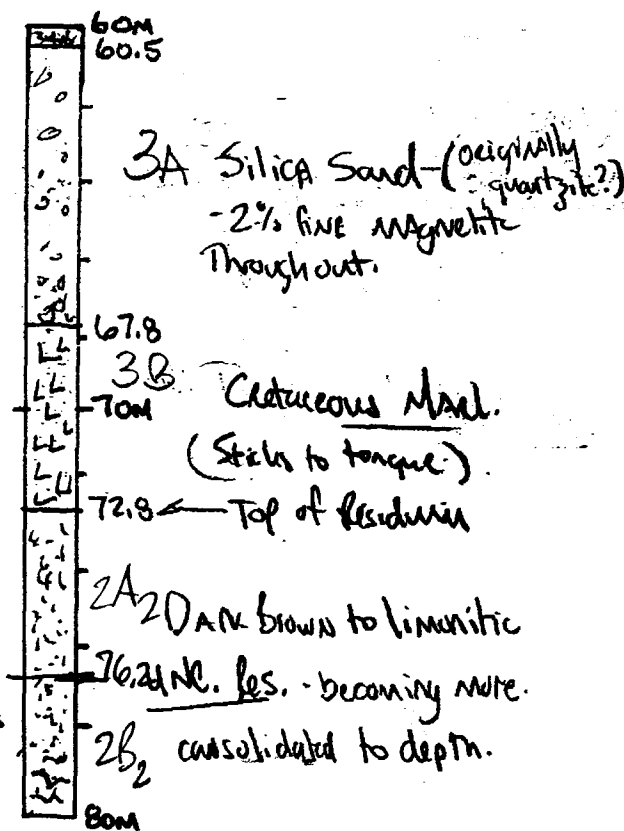 60M
60.5
3A Silica Sand-(originally
quartzite?)
-2% fine magnetite
Throughout.
67.8
3B
70M
Cretaceous Marl.
(Sticks to tongue.)
72.8 ← Top of Residuum
2A2 Dark brown to limonitic
76.2 UNC. Res. - becoming more.
2B2 consolidated to depth.
80M